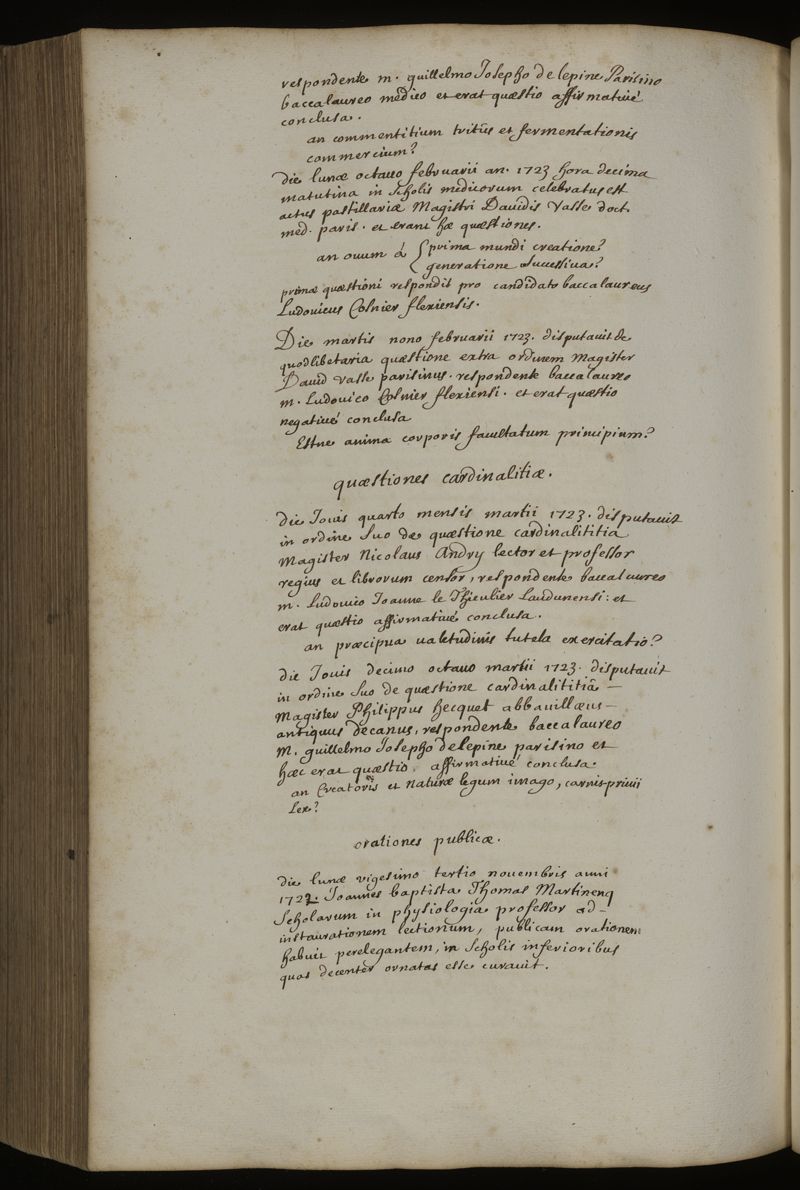 respondente m. guillelmo Josepho de lepine Parisino
baccalaureo medico et erat quæstio affirmativé
conclusa.
an commentitium tritûs et fermentationis
commercium?
Die lunæ octavo februarii an. 1723 hora decima
matutina in scholis medicorum celebratus est
actus pastillariæ Magistri Davidis Vasse doct.
med. paris. et erant hæ quæstiones.
an ovum à { prima mundi creatione?
generatione successiva?
primæ quæstioni respondit pro candidato baccalaureus
Ludovicus Colnier flexiensis.
Die martis nono februarii 1723. disputavit de
quodlibetaria quæstione extra ordinem Magister
David Vasse parisinus. respondente baccalaureo
m. Ludovico Colnier flexiensi. et erat quæstio
negativé conclusa
Estne anima corporis facultatum principium?
quæstiones cardinalitiæ.
die Jovis quarto mensis martii 1723. disputavit
in ordine suo de quæstione cardinalititia
Magister Nicolaus Andry lector et professor
regius et librorum censor, respondente baccalaureo
m. Ludovico Joanne le Thieulier Laudunensi: et
erat quæstio affirmativé conclusa.
an præcipua valetudinis tutela exercitatio?
die Jovis decimo octavo martii 1723. disputavit
in ordine suo de quæstione cardinalititiâ —
Magister Philippus hecquet abbavillæus —
antiquus decanus, respondente baccalaureo
M. guillelmo Josepho delepine parisino et
hæc erat quæstio, affirmativé conclusa.
an Creatoris et Naturæ legum imago, carnisprivii
Lex?
orationes publicæ.
die lunæ vigesimo tertio novembris anni
1722. Joannes baptista Thomas Martinenq
Scholarum in physiologia professor ad-
instaurationem lectionum, publicam orationem
habuit perelegantem, in Scholis inferioribus
quas decenter ornatas esse curavit.